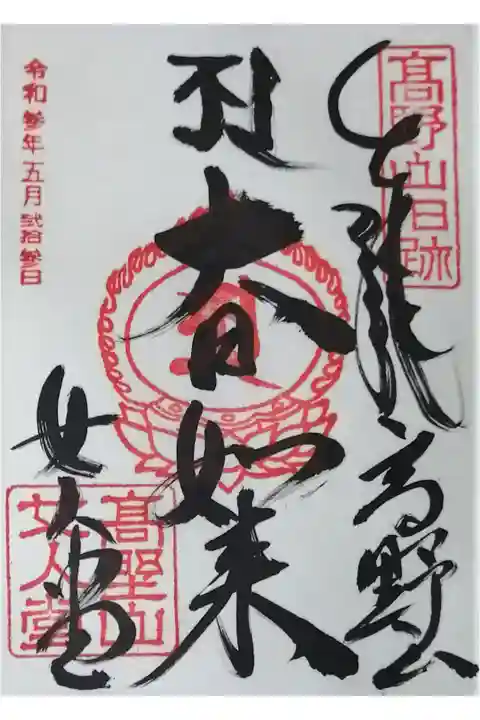 髙野山旧跡
高野山
大日如来
令和参年五月弐拾参日
女人堂
高埜山
女人堂